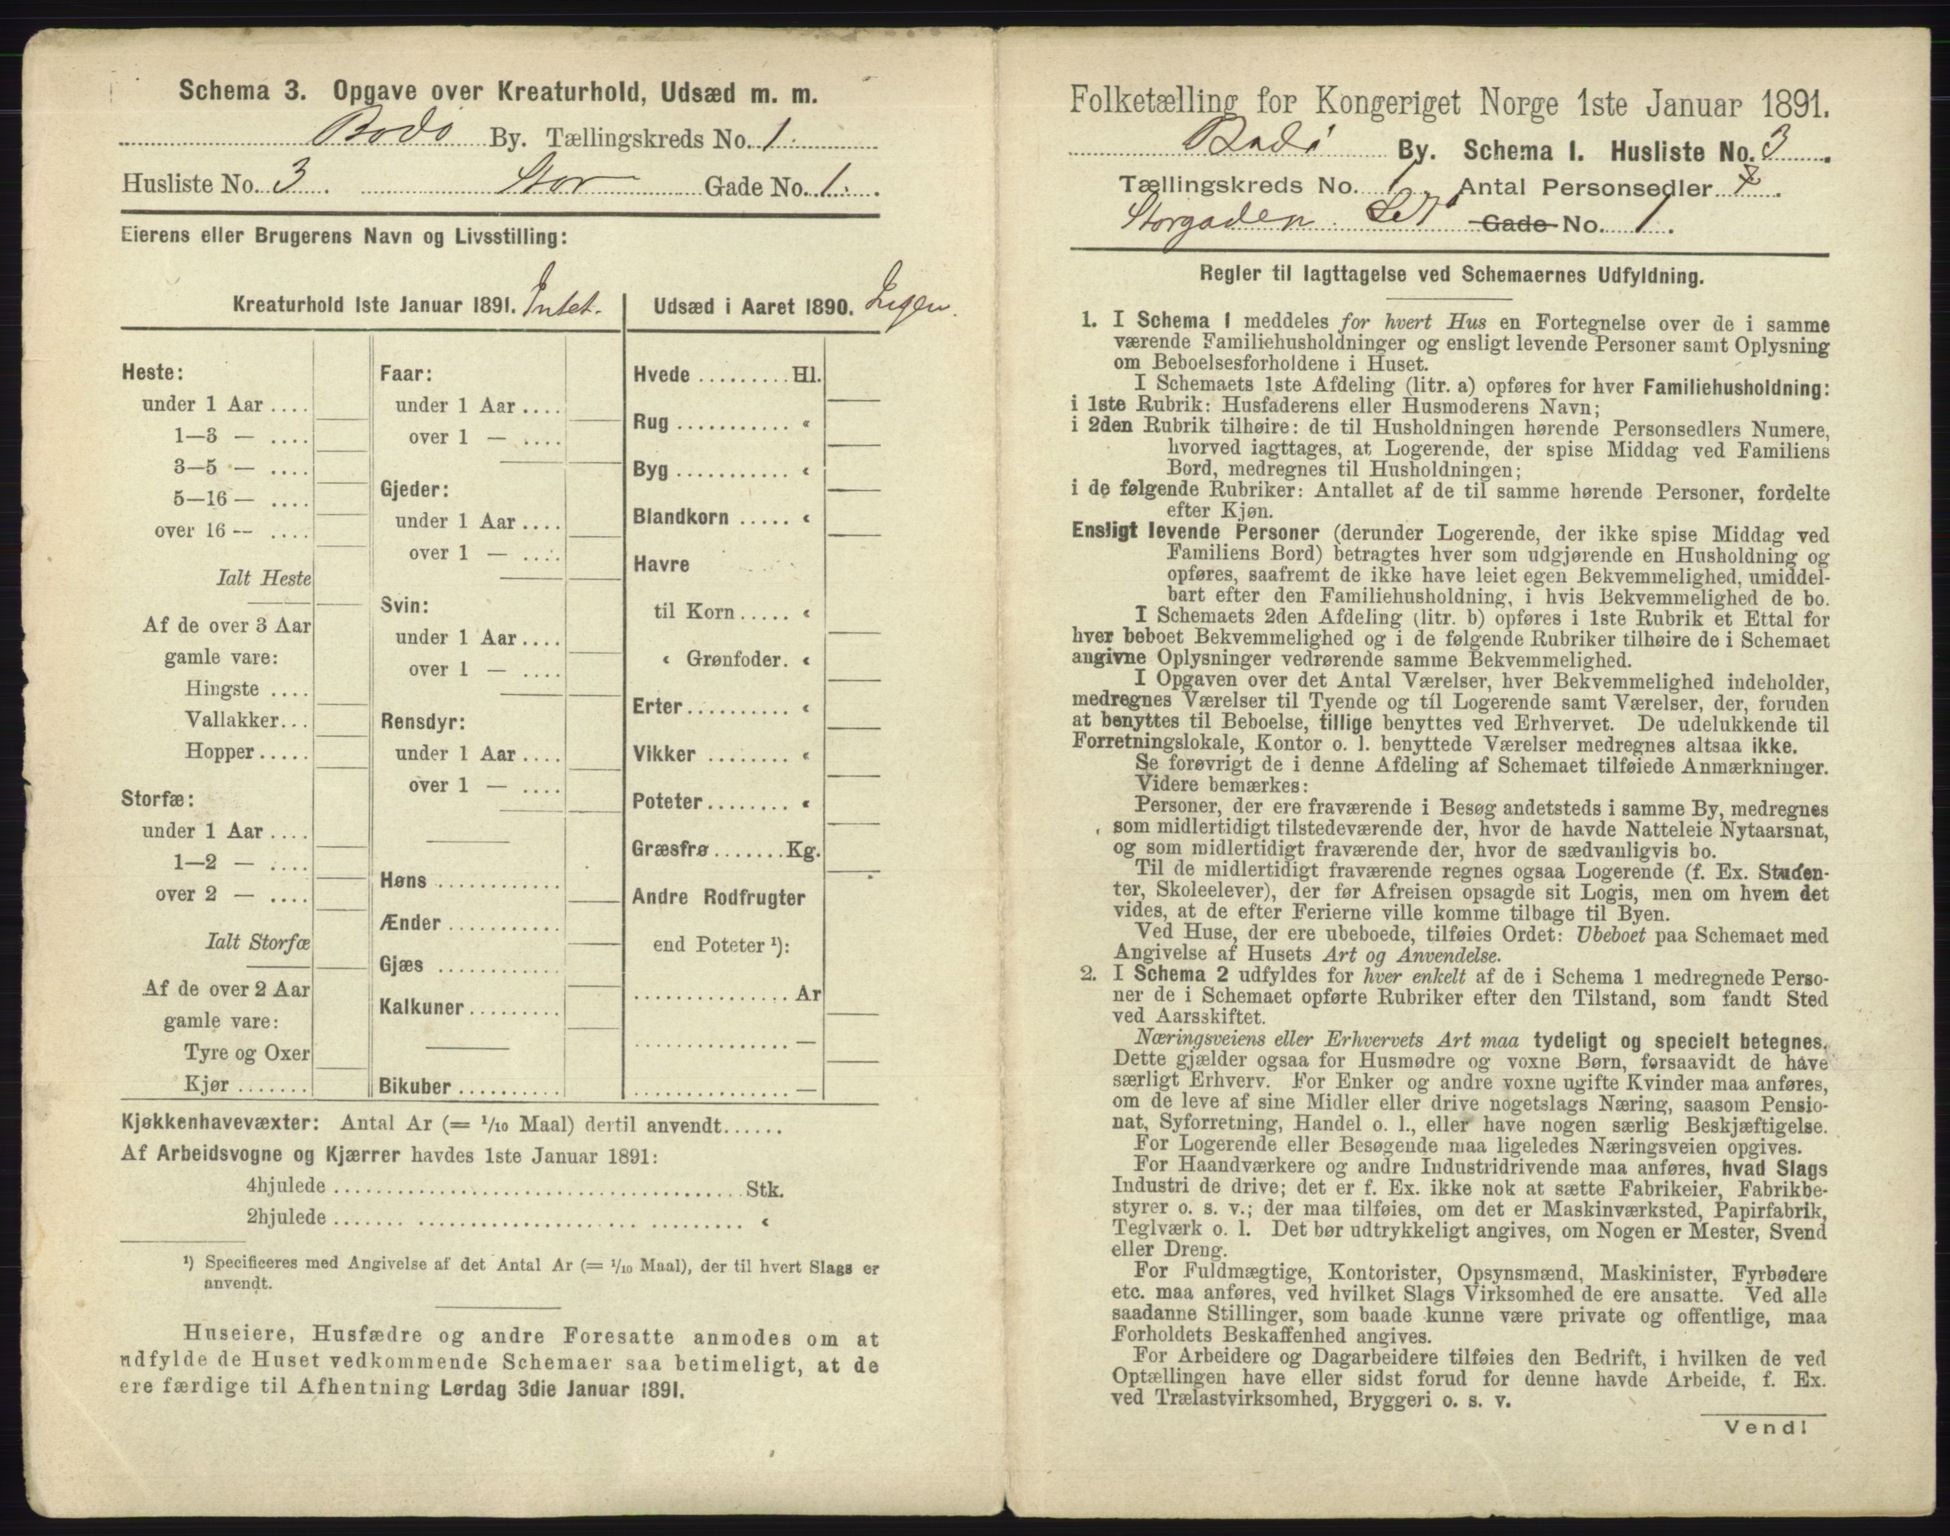 Schema 3. Opgave over Kreaturhold, Udsæd m. m.
Bodø By. Tællingskreds No. 1.
Husliste No. 3. Stor Gade No. 1.
Eierens eller Brugerens Navn og Livsstilling:
Kreaturhold 1ste Januar 1891. Intet.
Heste:
under 1 Aar ....
1—3 — ....
3—5 — ....
5—16 — ....
over 16 — ....
Ialt Heste
Af de over 3 Aar
gamle vare:
Hingste ....
Vallakker...
Hopper .....
Storfæ:
under 1 Aar ....
1—2 — ....
over 2 — ....
Ialt Storfæ
Af de over 2 Aar
gamle vare:
Tyre og Oxer
Kjør .......
Faar:
under 1 Aar ....
over 1 — ....
Gjeder:
under 1 Aar ....
over 1 — ....
Svin:
under 1 Aar ....
over 1 — ....
Rensdyr:
under 1 Aar ....
over 1 — ....
Høns ............
Ænder ...........
Gjæs ............
Kalkuner .........
Bikuber ..........
Udsæd i Aaret 1890. Ingen.
Hvede ......... Hl.
Rug ........... «
Byg ........... «
Blandkorn ..... «
Havre
til Korn ..... «
« Grønfoder. «
Erter .......... «
Vikker ........ «
Poteter ........ «
Græsfrø ....... Kg.
Andre Rodfrugter
end Poteter ¹):
............... Ar
............... —
............... —
Kjøkkenhavevæxter: Antal Ar (= 1/10 Maal) dertil anvendt......
Af Arbeidsvogne og Kjærrer havdes 1ste Januar 1891:
4hjulede ....................................... Stk.
2hjulede ....................................... «
¹) Specificeres med Angivelse af det Antal Ar (= 1/10 Maal), der til hvert Slags er
anvendt.
Huseiere, Husfædre og andre Foresatte anmodes om at
udfylde de Huset vedkommende Schemaer saa betimeligt, at de
ere færdige til Afhentning Lørdag 3die Januar 1891.
Folketælling for Kongeriget Norge 1ste Januar 1891.
Bodø By. Schema I. Husliste No. 3.
Tællingskreds No. 1. Antal Personsedler 7.
Storgaden Gade No. 1.
Regler til Iagttagelse ved Schemaernes Udfyldning.
1. I Schema 1 meddeles for hvert Hus en Fortegnelse over de i samme
værende Familiehusholdninger og ensligt levende Personer samt Oplysning
om Beboelsesforholdene i Huset.
I Schemaets 1ste Afdeling (litr. a) opføres for hver Familiehusholdning:
i 1ste Rubrik: Husfaderens eller Husmoderens Navn;
i 2den Rubrik tilhøire: de til Husholdningen hørende Personsedlers Numere,
hvorved iagttages, at Logerende, der spise Middag ved Familiens
Bord, medregnes til Husholdningen;
i de følgende Rubriker: Antallet af de til samme hørende Personer, fordelte
efter Kjøn.
Ensligt levende Personer (derunder Logerende, der ikke spise Middag ved
Familiens Bord) betragtes hver som udgjørende en Husholdning og
opføres, saafremt de ikke have leiet egen Bekvemmelighed, umiddel-
bart efter den Familiehusholdning, i hvis Bekvemmelighed de bo.
I Schemaets 2den Afdeling (litr. b) opføres i 1ste Rubrik et Ettal for
hver beboet Bekvemmelighed og i de følgende Rubriker tilhøire de i Schemaet
angivne Oplysninger vedrørende samme Bekvemmelighed.
I Opgaven over det Antal Værelser, hver Bekvemmelighed indeholder,
medregnes Værelser til Tyende og til Logerende samt Værelser, der, foruden
at benyttes til Beboelse, tillige benyttes ved Erhvervet. De udelukkende til
Forretningslokale, Kontor o. l. benyttede Værelser medregnes altsaa ikke.
Se forøvrigt de i denne Afdeling af Schemaet tilføiede Anmærkninger.
Videre bemærkes:
Personer, der ere fraværende i Besøg andetsteds i samme By, medregnes
som midlertidigt tilstedeværende der, hvor de havde Natteleie Nytaarsnat,
og som midlertidigt fraværende der, hvor de sædvanligvis bo.
Til de midlertidigt fraværende regnes ogsaa Logerende (f. Ex. Studen-
ter, Skoleelever), der før Afreisen opsagde sit Logis, men om hvem det
vides, at de efter Ferierne ville komme tilbage til Byen.
Ved Huse, der ere ubeboede, tilføies Ordet: Ubeboet paa Schemaet med
Angivelse af Husets Art og Anvendelse.
2. I Schema 2 udfyldes for hver enkelt af de i Schema 1 medregnede Perso-
ner de i Schemaet opførte Rubriker efter den Tilstand, som fandt Sted
ved Aarsskiftet.
Næringsveiens eller Erhvervets Art maa tydeligt og specielt betegnes.
Dette gjælder ogsaa for Husmødre og voxne Børn, forsaavidt de have
særligt Erhverv. For Enker og andre voxne ugifte Kvinder maa anføres,
om de leve af sine Midler eller drive nogetslags Næring, saasom Pensio-
nat, Syforretning, Handel o. l., eller have nogen særlig Beskjæftigelse.
For Logerende eller Besøgende maa ligeledes Næringsveien opgives.
For Haandværkere og andre Industridrivende maa anføres, hvad Slags
Industri de drive; det er f. Ex. ikke nok at sætte Fabrikeier, Fabrikbe-
styrer o. s. v.; der maa tilføies, om det er Maskinværksted, Papirfabrik,
Teglværk o. l. Det bør udtrykkeligt angives, om Nogen er Mester, Svend
eller Dreng.
For Fuldmægtige, Kontorister, Opsynsmænd, Maskinister, Fyrbødere
etc. maa anføres, ved hvilket Slags Virksomhed de ere ansatte. Ved alle
saadanne Stillinger, som baade kunne være private og offentlige, maa
Forholdets Beskaffenhed angives.
For Arbeidere og Dagarbeidere tilføies den Bedrift, i hvilken de ved
Optællingen have eller sidst forud for denne havde Arbeide, f. Ex.
ved Trælastvirksomhed, Bryggeri o. s. v.
Vend!